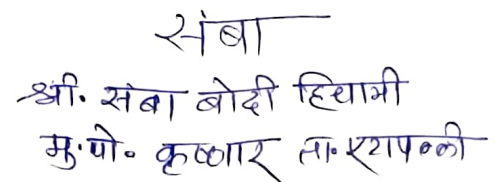 संबा
श्री. संबा बोदी हिचामी
मु.पो. कृष्णार ता. एटापल्ली